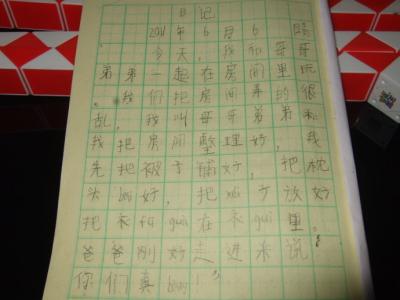 日记
2011年6月6 晴
今天，我和哥哥
弟弟一起在房间里玩
。我们把房间弄的很
乱，我叫哥哥弟弟和
我把房间整理好，我
先把被子铺好，把枕
头 bǎi 好，把 xié 子放好
把衣 guà 在衣 guì 里。
爸爸刚好走进来说：
你们真 bàng！"